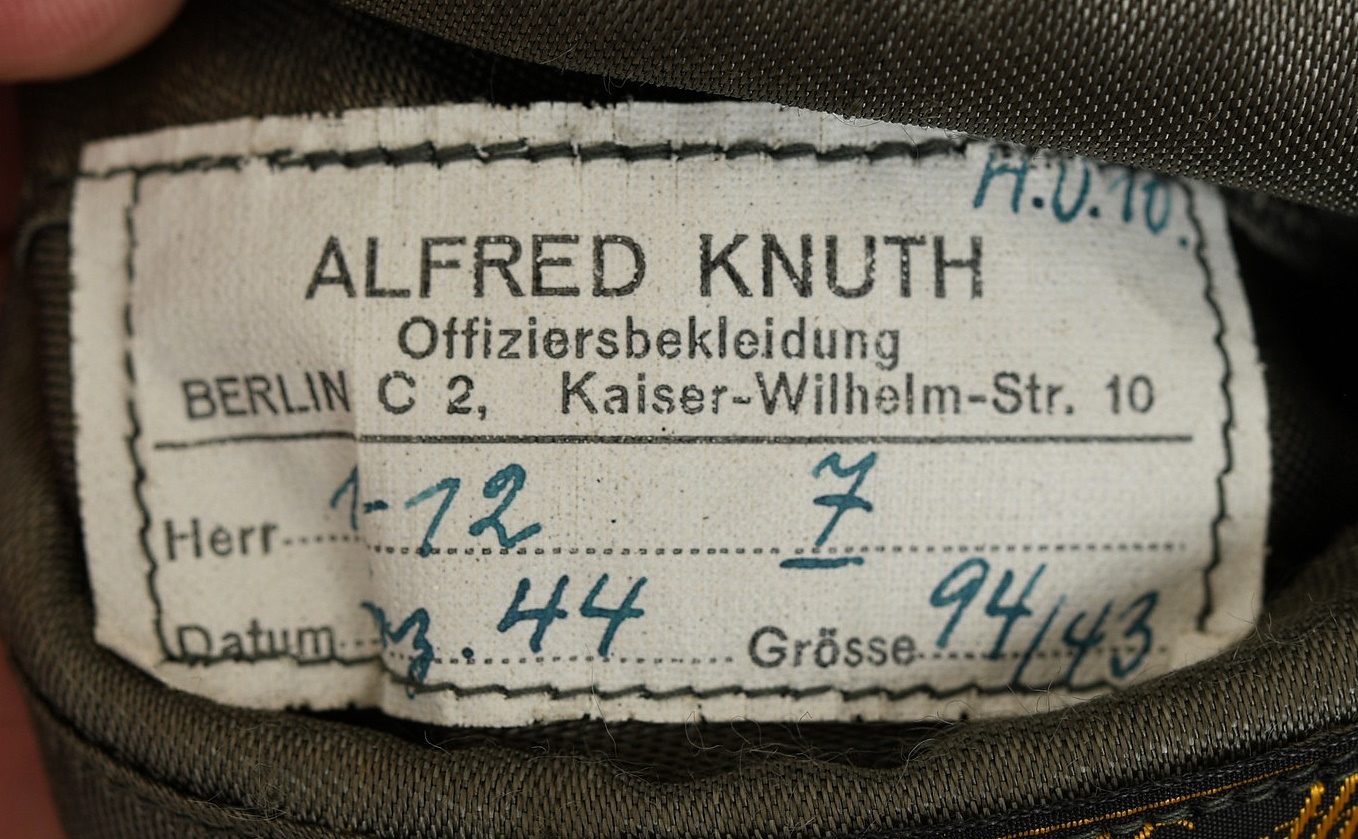 H.U.10.
ALFRED KNUTH
Offiziersbekleidung
BERLIN C 2, Kaiser-Wilhelm-Str. 10
Herr 1-12 7
Datum 44 Grösse 94/43